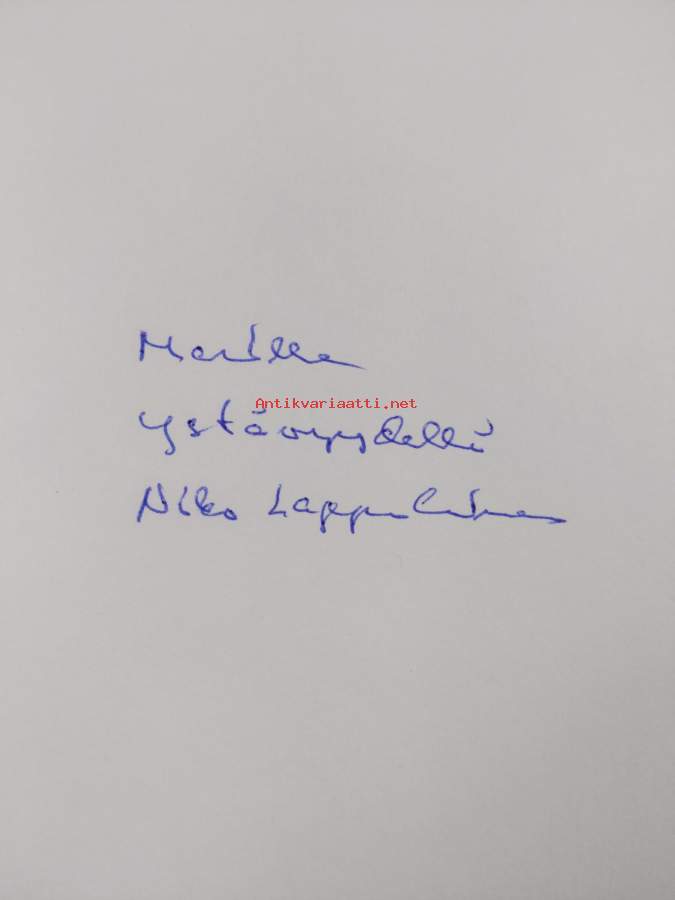 Marille
Antikvariaatti.net
ystävyydellä
Niko Lappalainen